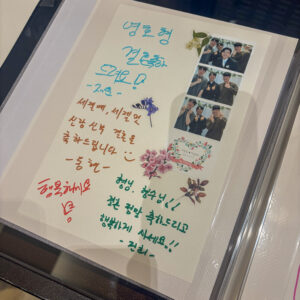 영호형
결혼축하
드려요!
세젤예, 세젤멋
신랑 신부 결혼을
축하드립니다
행복하세요
형님, 형수님!!
결혼 정말 축하드리고
행복하게 사세요!!